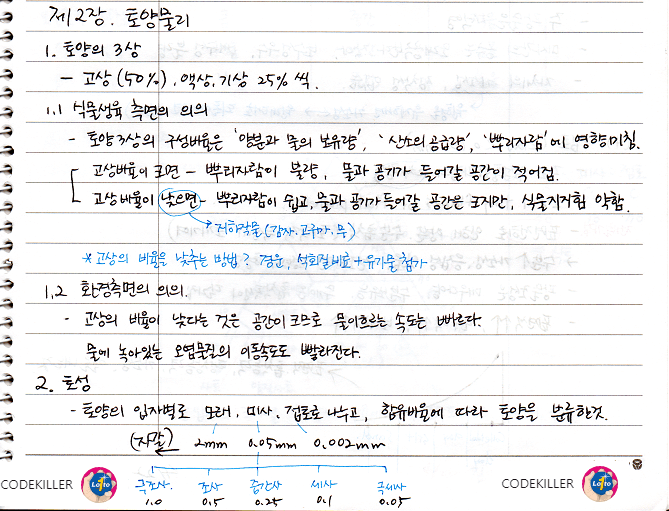 제2장. 토양물리
1. 토양의 3상
- 고상 (50%), 액상, 기상 25% 씩.
1.1 식물생육 측면의 의의
- 토양 3상의 구성비율은 '양분과 물의 보유량', '산소의 공급량', '뿌리자람'에 영향미침.
고상비율이 크면 - 뿌리자람이 불량, 물과 공기가 들어갈 공간이 적어짐.
고상비율이 낮으면 - 뿌리자람이 쉽고, 물과 공기가 들어갈 공간은 크지만, 식물지지힘 약함.
→ 지하작물 (감자. 고구마. 무)
* 고상의 비율을 낮추는 방법? 경운, 석회질비료 + 유기물 첨가
1.2 환경측면의 의의.
- 고상의 비율이 낮다는 것은 공간이 크므로 물이흐르는 속도는 빠르다.
물에 녹아있는 오염물질의 이동속도도 빨라진다.
2. 토성
- 토양의 입자별로 모래, 미사, 점토로 나누고, 함유비율에 따라 토양을 분류한것.
(자갈) ← 2mm 0.05mm 0.002mm
극조사. 조사 중간사 세사 극세사
1.0 0.5 0.25 0.1 0.05
CODEKILLER Lotto CODEKILLER Lotto